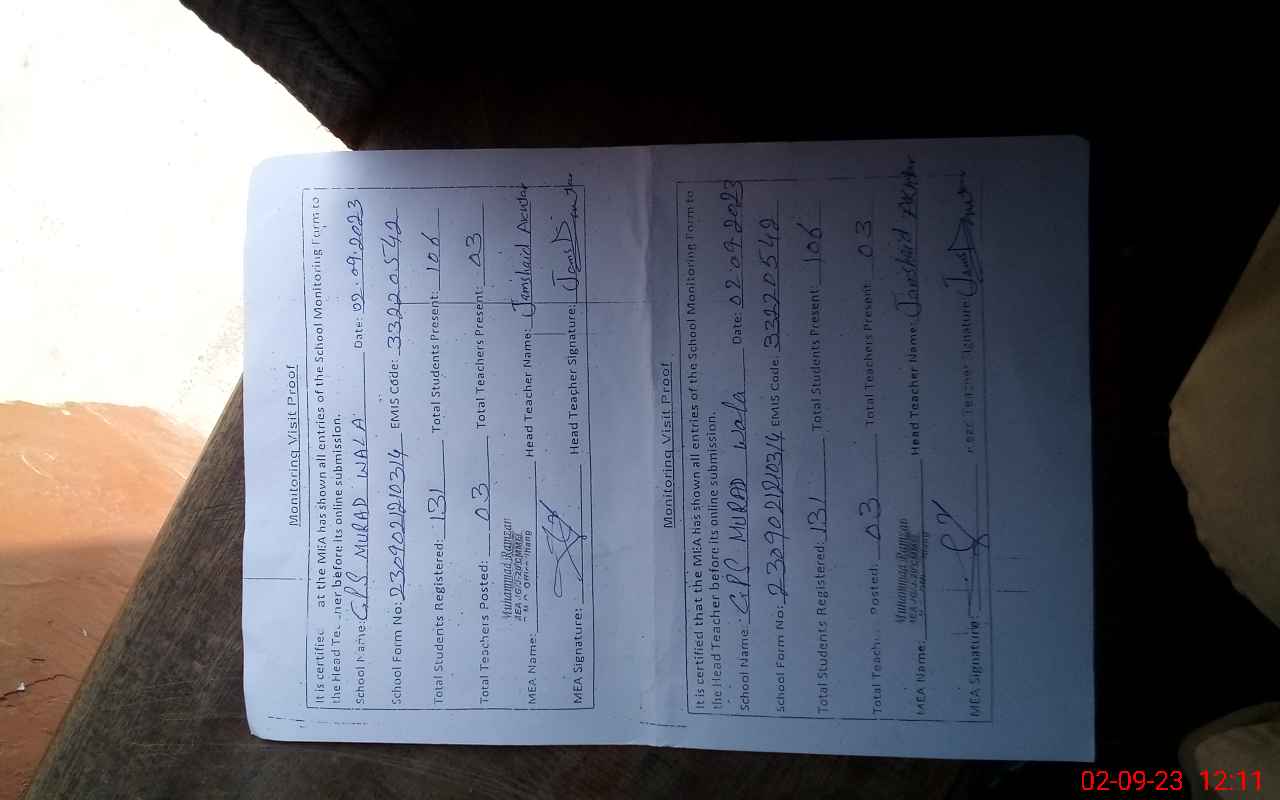 Monitoring Visit Proof
It is certified at the MEA has shown all entries of the School Monitoring Form to
the Head Teacher before its online submission.
School Name: GPS MURAD WALA Date: 02.09.2023
School Form No: 230902121034 EMIS Code: 33220542
Total Students Registered: 131 Total Students Present: 106
Total Teachers Posted: 03 Total Teachers Present: 03
Muhammad Ramzan
MEA Name: Head Teacher Name: Jamshaid Akhtar
MEA Signature: Head Teacher Signature:
Monitoring Visit Proof
It is certified that the MEA has shown all entries of the School Monitoring Form to
the Head Teacher before its online submission.
School Name: GPS MURAD Wala Date: 02.09.2023
School Form No: 230902121034 EMIS Code: 33220542
Total Students Registered: 131 Total Students Present: 106
Total Teach Posted: 03 Total Teachers Present: 03
Muhammad Ramzan
MEA Name: Head Teacher Name: Jamshaid Akhtar
MEA Signature: Head Teacher Signature
02-09-23 12:11